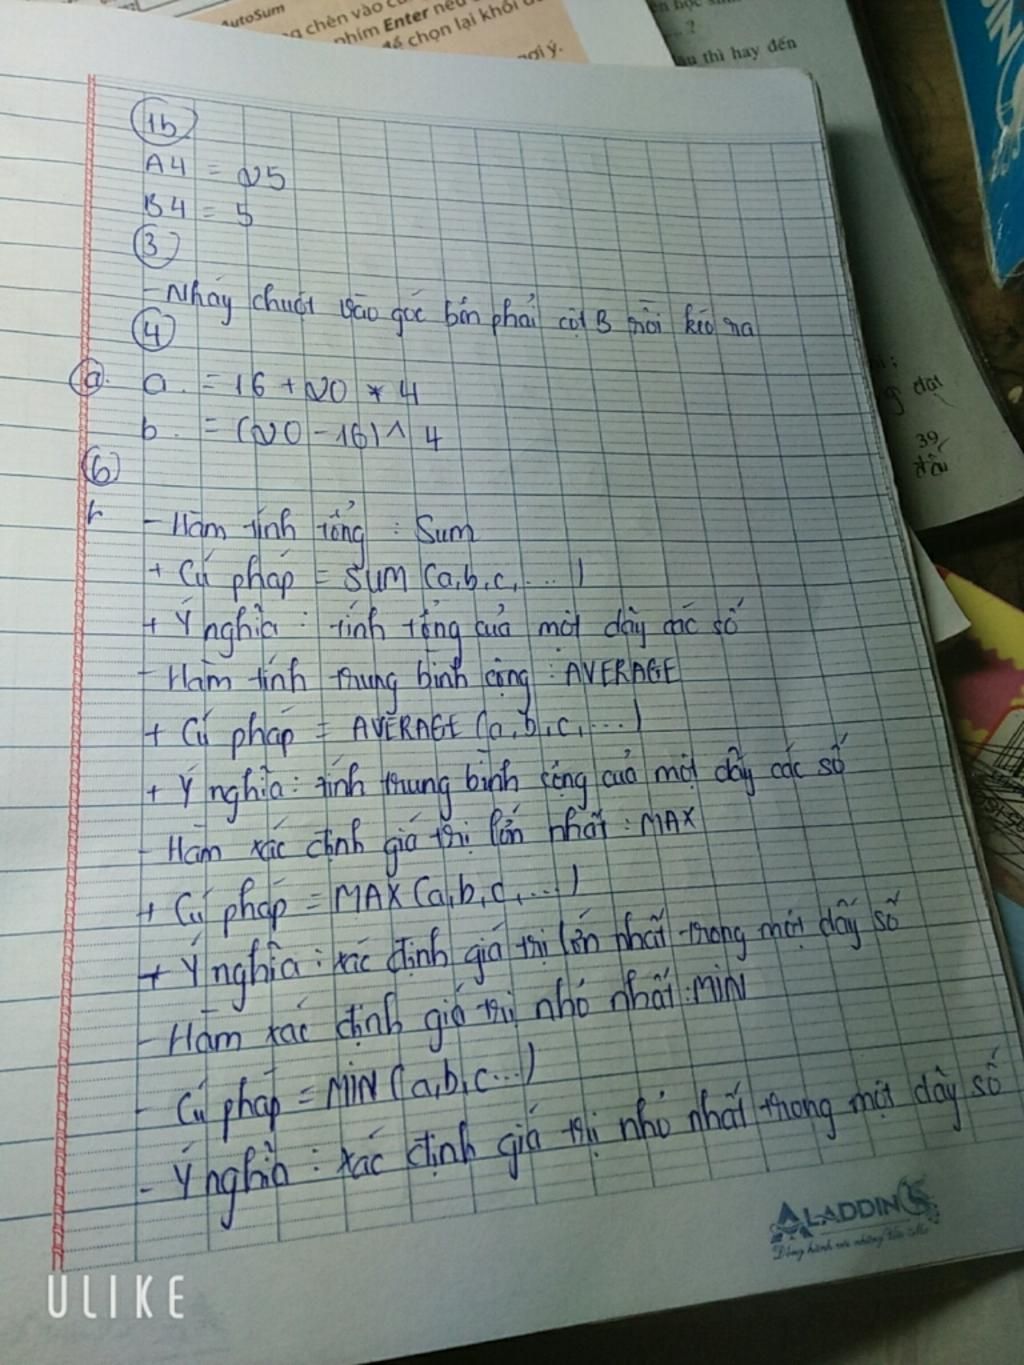 AutoSum
phím Enter nếu
để chọn lại khối
gợi ý.
?
thì hay đến
1b
A4 = 25
B4 = 5
3
- Nháy chuột vào góc bên phải cột B rồi kéo ra
4
a. a. = 16 + 20 * 4
b. = (20 - 16) ^ 4
6
- Hàm tính tổng : Sum
+ Cú pháp = SUM (a,b,c,....)
+ Ý nghĩa : tính tổng của một dãy các số
- Hàm tính trung bình cộng : AVERAGE
+ Cú pháp = AVERAGE (a,b,c,....)
+ Ý nghĩa : tính trung bình cộng của một dãy các số
- Hàm xác định giá trị lớn nhất : MAX
+ Cú pháp = MAX (a,b,c,....)
+ Ý nghĩa : xác định giá trị lớn nhất trong một dãy số
- Hàm xác định giá trị nhỏ nhất : MIN
- Cú pháp = MIN (a,b,c...)
- Ý nghĩa : xác định giá trị nhỏ nhất trong một dãy số
đạt
39
ALADDIN
ULIKE